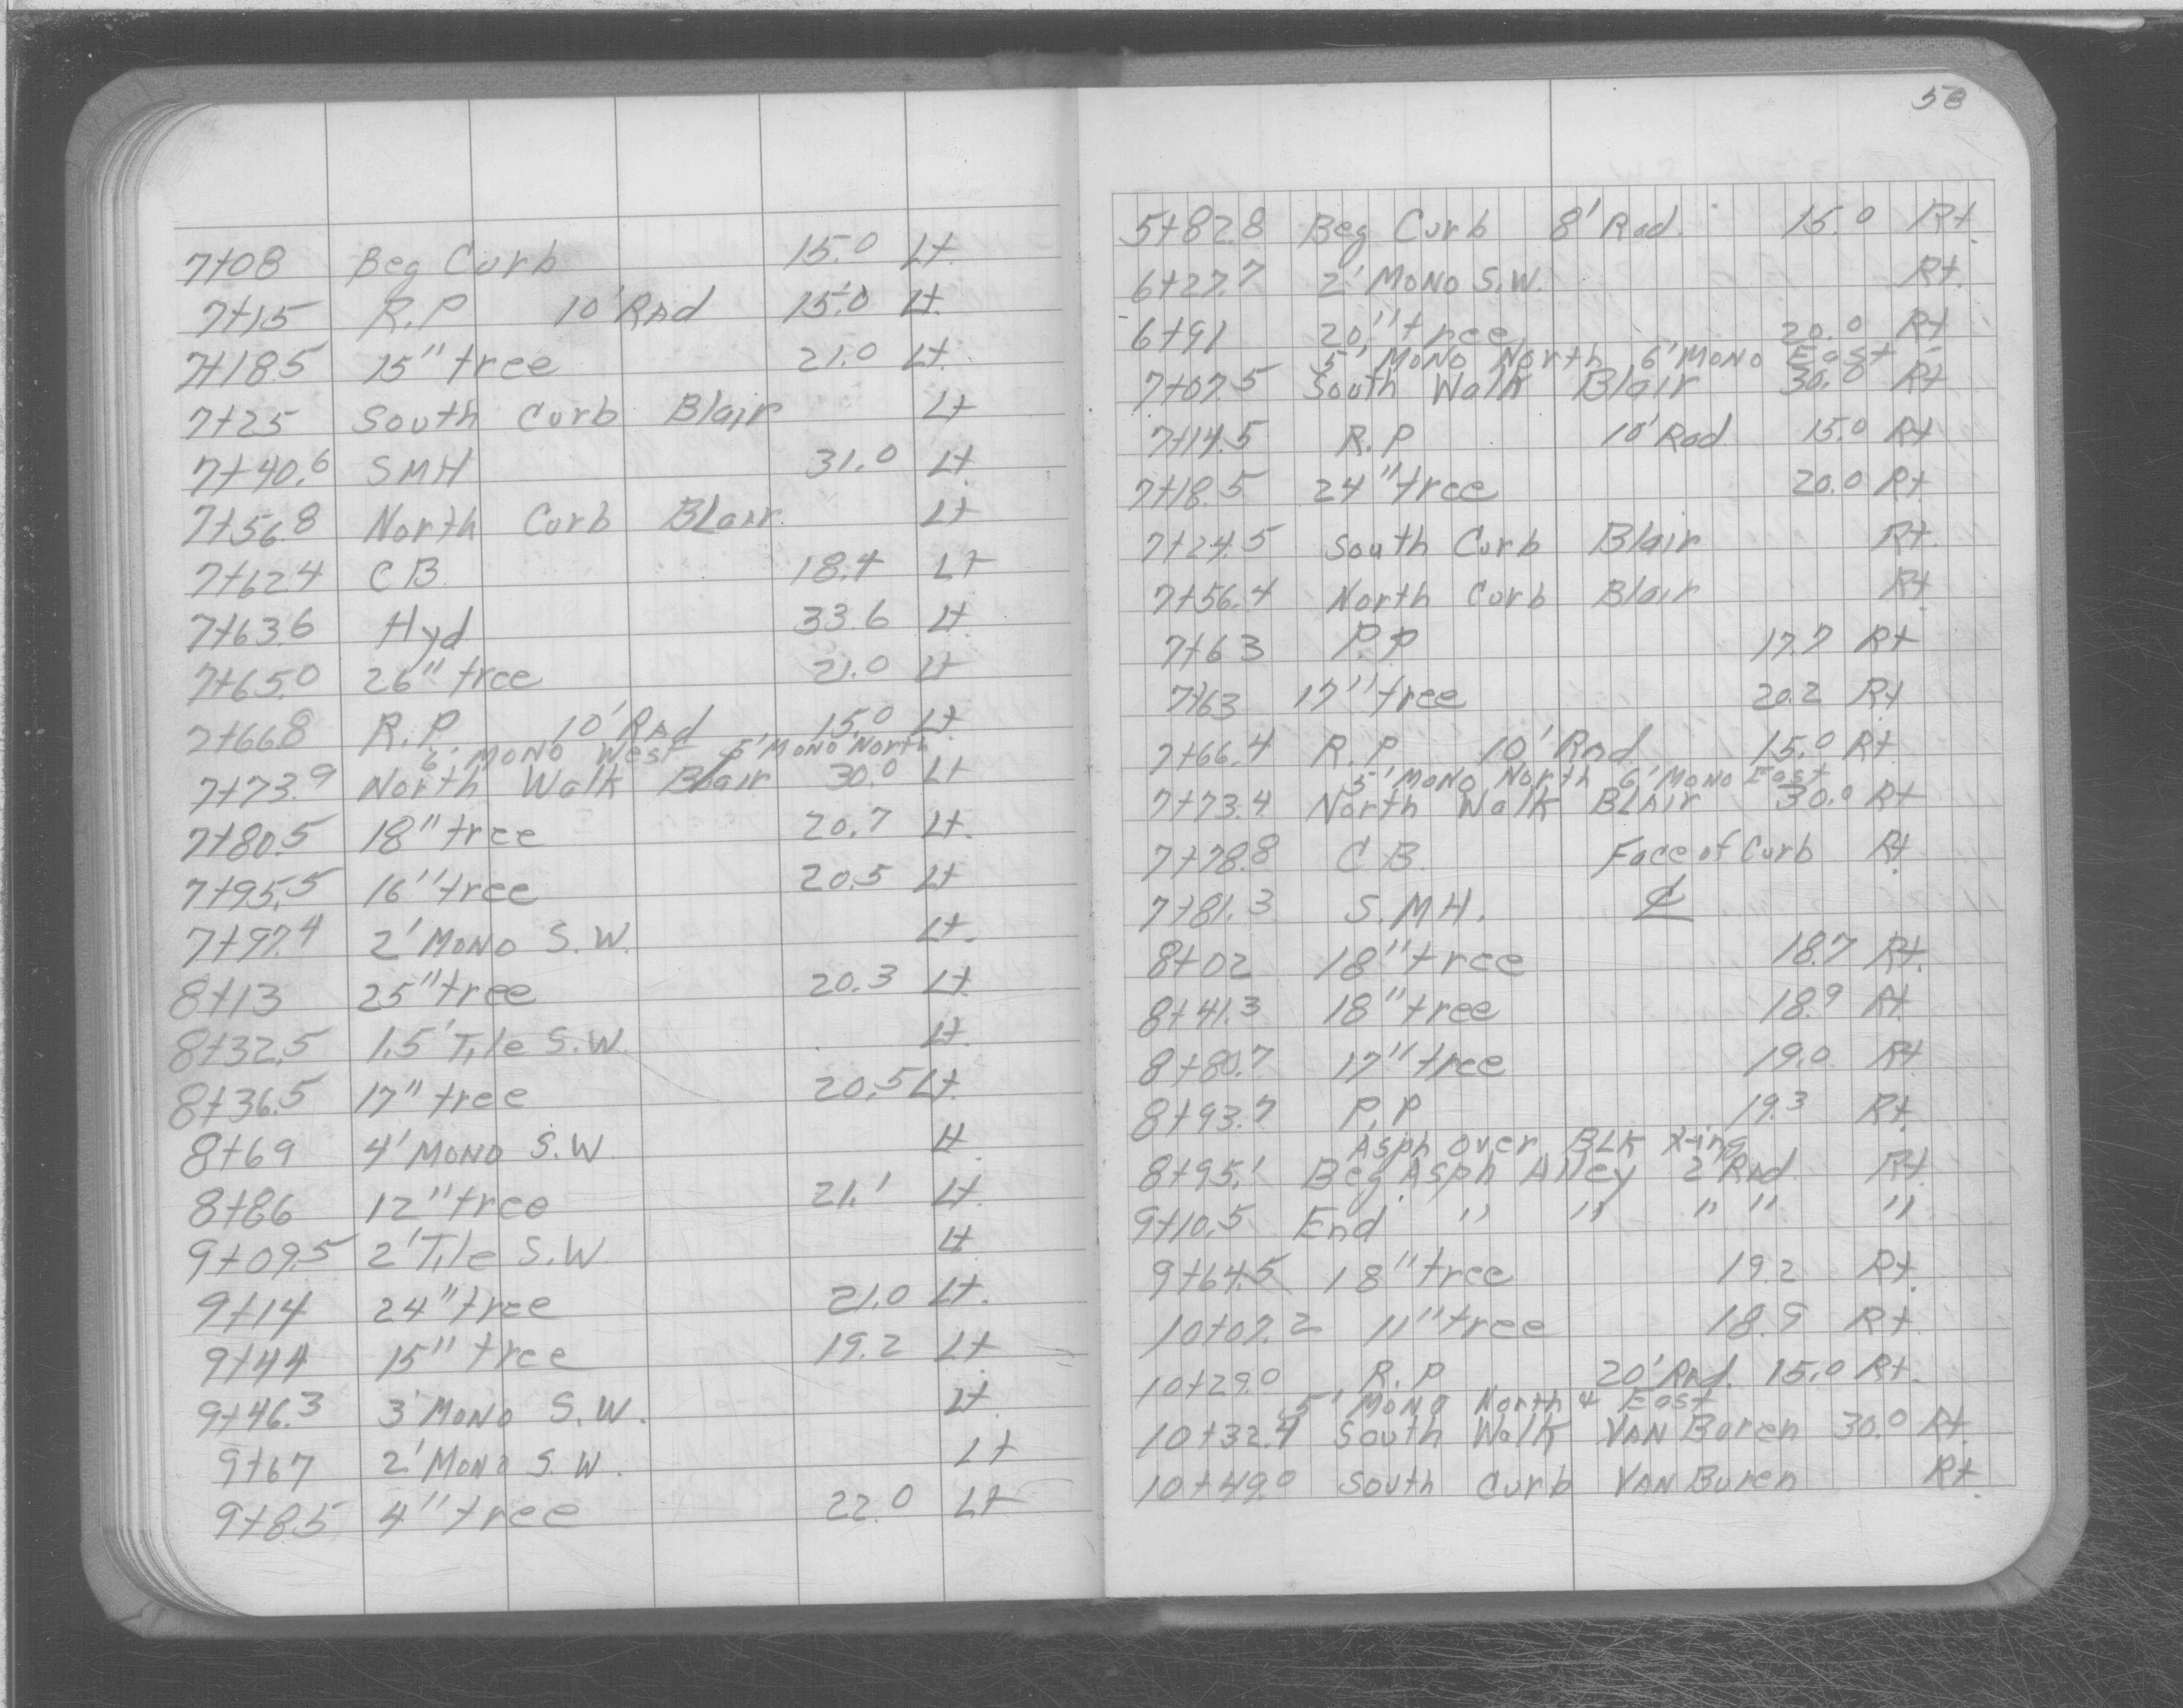 7+08 Beg Curb 15.0 Lt.
7+15 R.P 10' Rad 15.0 Lt.
7+18.5 15" tree 21.0 Lt.
7+25 South Curb Blair Lt
7+40.6 SMH 31.0 Lt.
7+56.8 North Curb Blair. Lt
7+62.4 CB 18.4 Lt
7+63.6 Hyd 33.6 Lt.
7+65.0 26" tree 21.0 Lt
7+66.8 R.P. 10' Rad 15.0 Lt.
6' Mono West 5' Mono North
7+73.9 North Walk Blair 30.0 Lt
7+80.5 18" tree 20.7 Lt.
7+95.5 16" tree 20.5 Lt
7+97.4 2' Mono S.W. Lt.
8+13 25" tree 20.3 Lt.
8+32.5 1.5' Tile S.W. Lt.
8+36.5 17" tree 20.5 Lt.
8+69 4' Mono S.W. Lt.
8+86 12" tree 21.1 Lt.
9+09.5 2' Tile S.W. Lt.
9+14 24" tree 21.0 Lt.
9+44 15" tree 19.2 Lt.
9+46.3 3' Mono S.W. Lt.
9+67 2' Mono S.W. Lt
9+8.5 4" tree 22.0 Lt
58
5+82.8 Beg Curb 8' Rad. 15.0 Rt.
6+27.7 2' Mono S.W. Rt.
6+91 20" tree 20.0 Rt
5' Mono North 6' Mono East
7+07.5 South Walk Blair 30.0 Rt
7+14.5 R.P 10' Rad 15.0 Rt
7+18.5 24" tree 20.0 Rt.
7+24.5 South Curb Blair Rt.
7+56.4 North Curb Blair Rt.
7+63 P.P 17.7 Rt
7+63 17" tree 20.2 Rt.
7+66.4 R.P. 10' Rad 15.0 Rt.
5' Mono North 6' Mono East
7+73.4 North Walk Blair 30.0 Rt
7+78.8 CB. Face of Curb Rt.
7+81.3 S.M.H. ℄
8+02 18" tree 18.7 Rt.
8+41.3 18" tree 18.9 Rt.
8+80.7 17" tree 19.0 Rt
8+93.7 P.P 19.3 Rt.
Asph over BLK X-ing
8+95.1 Beg. Asph Alley 2' Rad. Rt.
9+10.5 End " " " " "
9+64.5 18" tree 19.2 Rt.
10+07.2 11" tree 18.9 Rt.
10+29.0 R.P 20' Rad. 15.0 Rt.
5' Mono North & East
10+32.4 South Walk Van Buren 30.0 Rt.
10+49.0 South Curb Van Buren Rt.